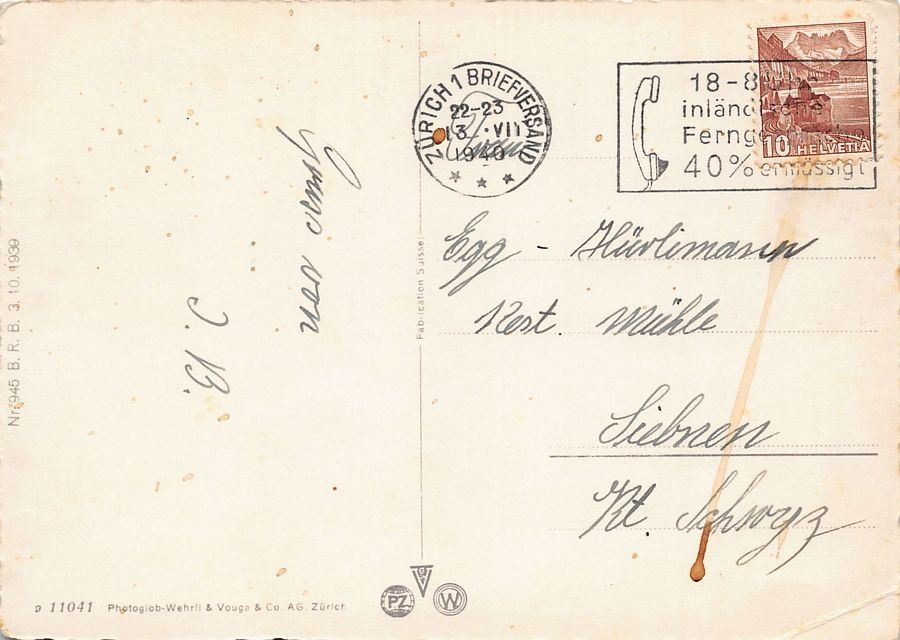 ZÜRICH 1 BRIEFVERSAND
22-23
13. VII
1940
18-8
inländ
Fernge
40% ermässigt
10 HELVETIA
Gruss
von
J. B.
Egg - Hürlimann
Rest. Mühle
Siebnen
Kt Schwyz
Fabrication Suisse
Nr. 945 B. R. B. 3. 10. 1939
D 11041 Photoglob-Wehrli & Vouga & Co. AG. Zürich
PZ
V
W